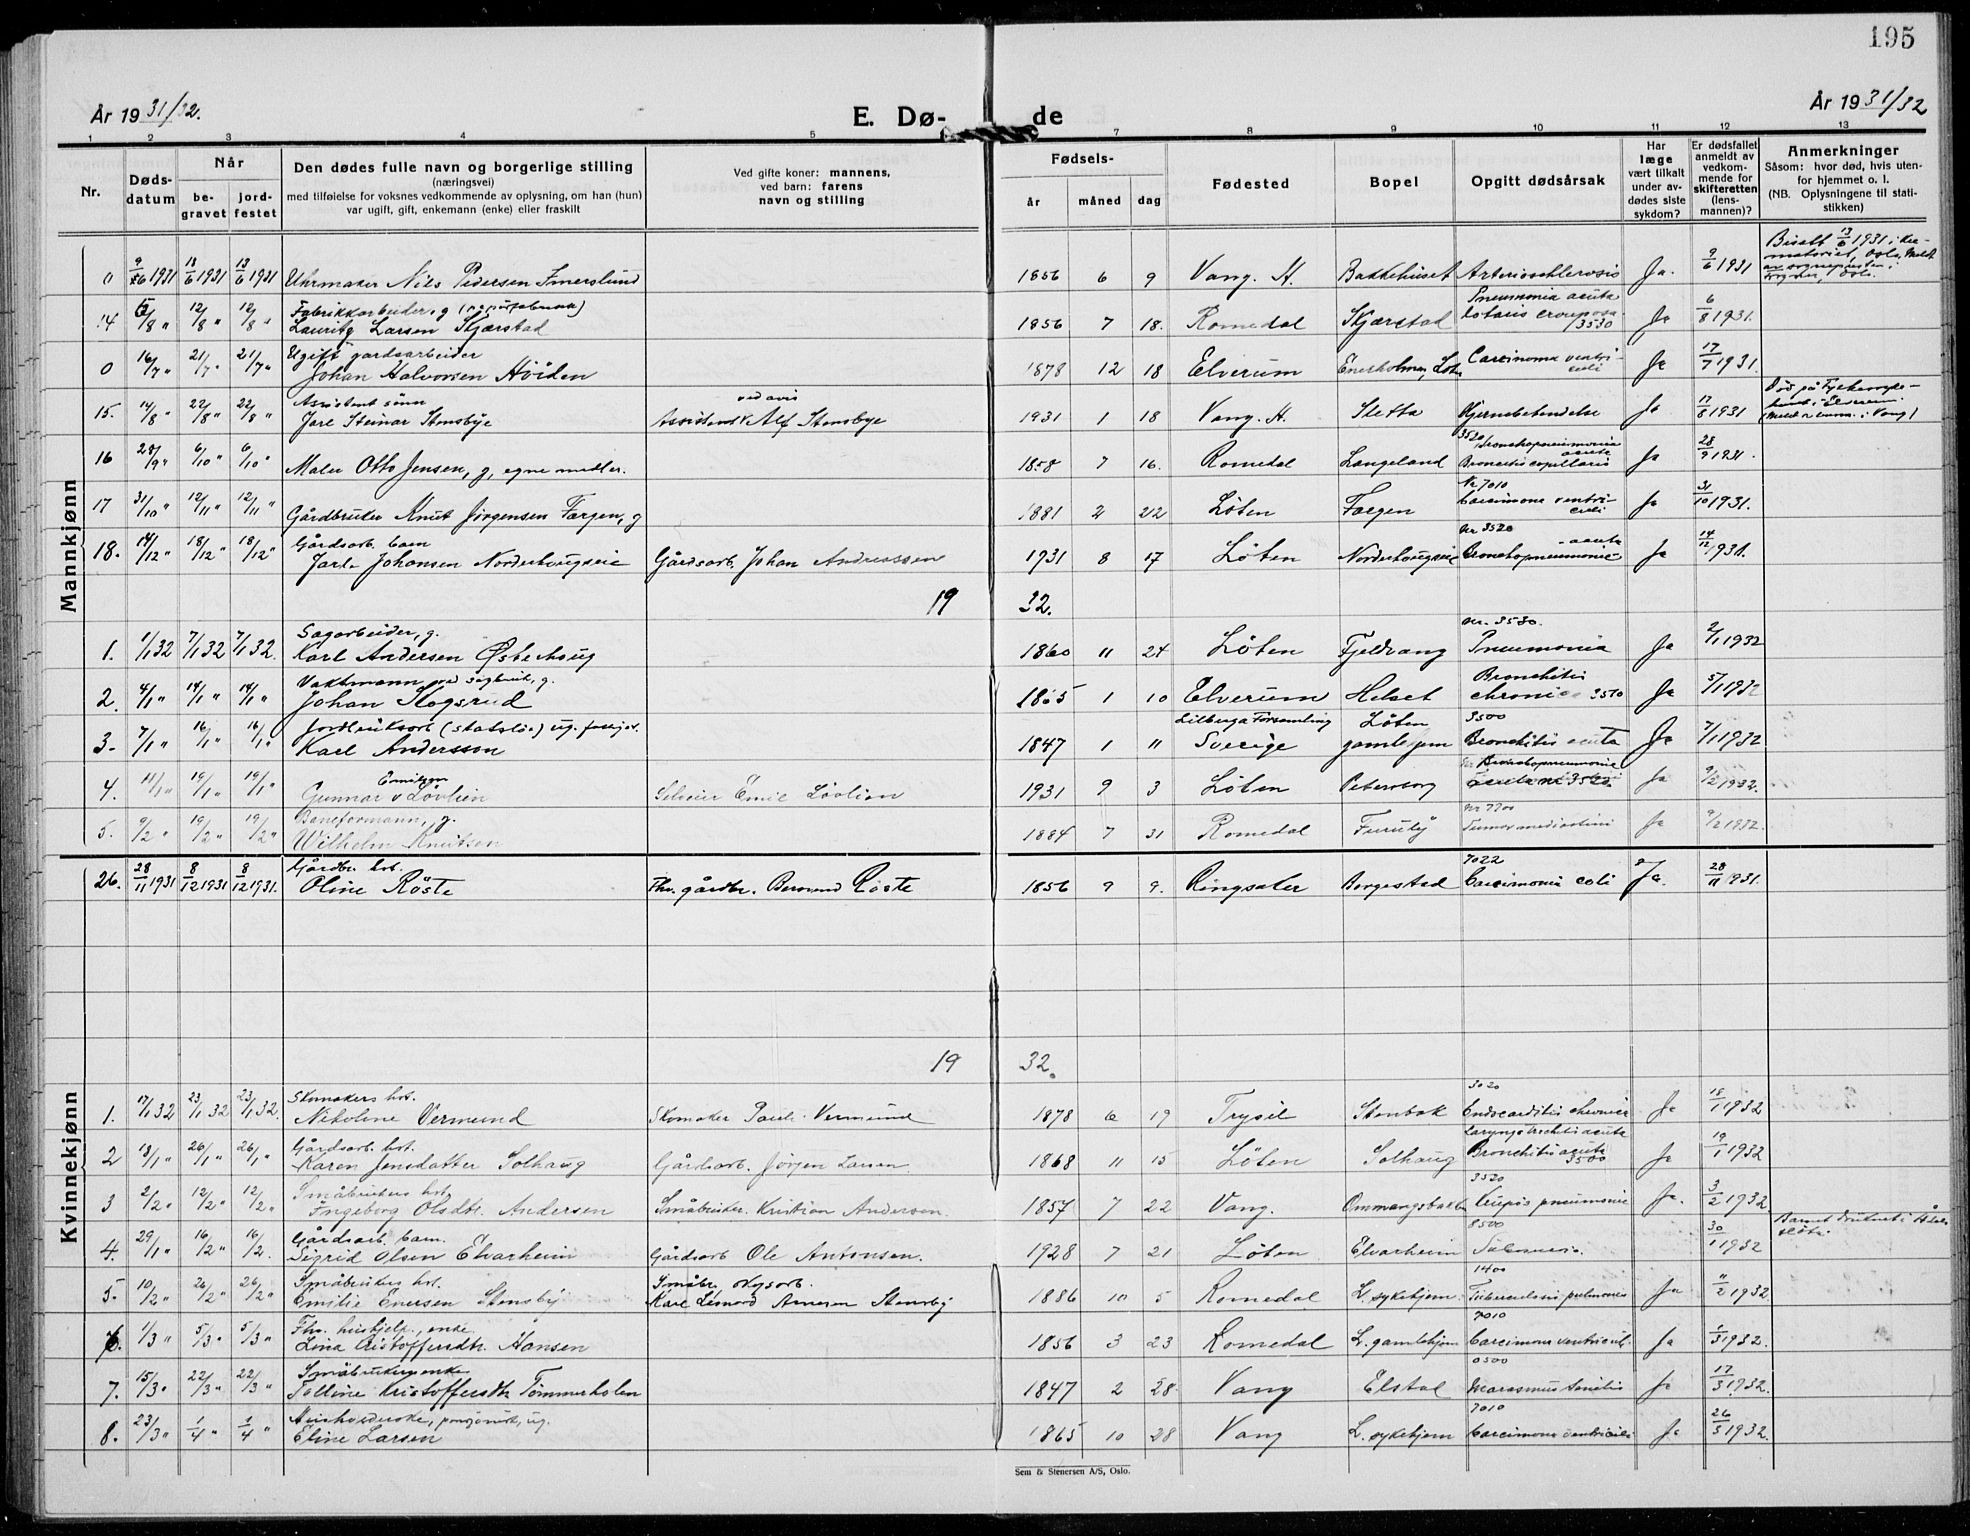 195
År 1931/32.
E. Dø-
de
År 1931/32
1 2 3 4 5 7 8 9 10 11 12 13
Nr.
Døds-
datum
Når
be-
gravet
jord-
festet
Den dødes fulle navn og borgerlige stilling
(næringsvei)
med tilføielse for voksnes vedkommende av oplysning, om han (hun)
var ugift, gift, enkemann (enke) eller fraskilt
Ved gifte koner: mannens,
ved barn: farens
navn og stilling
Fødsels-
år måned dag
Fødested
Bopel
Opgitt dødsårsak
Har
læge
vært tilkalt
under av-
dødes siste
sykdom?
Er dødsfallet
anmeldt av
vedkom-
mende for
skifteretten
(lens-
mannen)?
Anmerkninger
Såsom: hvor død, hvis uten-
for hjemmet o. l.
(NB. Oplysningene til stati-
stikken)
Mannkjønn
0 9/6 1931 13/6 1931 13/6 1931 Uhrmaker Nils Pedersen Imerslund 1856 6 9 Vang. H. Bakkehuset Arteriosclerosis Ja. 9/6 1931
Bisatt 13/6 1931 i kre-
matoriet, Oslo.
14 6/8 " 12/8 " 12/8 " Fabrikkarbeider, g
Lauritz Larsen Skjærstad 1856 7 18. Romedal Skjærstad Pneumonia acuta
lotaris crouposa
3530 Ja 6/8 1931.
0 16/7 " 21/7 " 21/7 " Ugift gardsarbeider
Johan Halvorsen Hviden 1878 12 18 Elverum Enersholmen, Løten Carcinoma ventri-
culi Ja 17/7 1931.
15. 14/8 " 22/8 " 22/8 " Assistent sønn
Jarl Steinar Stensbye Assistent v Alf Stensbye
ved avis 1931 1 18 Vang. H. Sletta Hjernebetendelse Ja 17/8 1931
16 28/9 " 6/10 " 6/10 " Maler Otto Jensen, g, egne midler. 1858 7 16. Romedal Langeland 3520 Bronchopneumonia
acuta
Bronchitis capillaris Ja 28/9 1931.
17 31/10 " 12/11 " 12/11 " Gårdbruker Knut Jørgensen Færgen, g 1881 2 22 Løten Færgen Nr 7010
Carcinoma ventri-
culi Ja 31/10 1931.
18. 14/12 " 18/12 " 18/12 " Gårdsarb. barn
Jarle Johansen Norderhougseie Gårdsarb. Johan Andreassen 1931 8 17 Løten Norderhougseie nr. 3520
acuta
Bronchopneumonie Ja 14/12 1931.
19 32.
1. 1/1 32 7/1 32 7/1 32. Sagarbeider, g.
Karl Andersen Østerhaug 1860 11 24 Løten Fjeldvang nr. 3530.
Pneumonia Ja 2/1 1932
2. 4/1 " 14/1 " 14/1 " Vaktmann ved sagbruk, g.
Johan Skogsrud 1865 1 10 Elverum Helset Bronchitis
chronica 3510 Ja 5/1 1932
3. 7/1 " 16/1 " 16/1 " Jordbruksarb (statsløs) ug.
Karl Andersson 1847 1 11 Lilberga Församling
Sverige Løten
gamlehjem 3500
Bronchitis acuta Ja 7/1 1932
4. 11/1 " 19/1 " 19/1 " Emilsøn
Gunnar v Løvlien Selveier Emil Løvlien 1931 9 3 Løten Petersborg Bronchopneumonie
acuta nr 3520 Ja 9/2 1932.
5. 9/2 " 19/2 " 19/2 " Baneformann, g.
Wilhelm Knutsen 1884 7 31 Romedal Furuly nr 7700
Tumor mediastini Ja 9/2 1932.
26. 28/11 1931 8/12 1931 8/12 1931. Gårdbr. hst.
Oline Röste Fhv. gårdbr. Bernund Röste 1856 9 9. Ringsaker Borgestad 7022
Carcinoma coli Ja. 28/11 1931.
19 32.
Kvinnekjønn
1. 17/1 32 23/1 32 23/1 32. Skomakers hst.
Nikoline Vermund Skomaker Paul Vermund 1878 6 19 Trysil Stenbak 3020
Endocarditis chronica Ja 18/1 1932
2 18/1 " 26/1 " 26/1 " Gårdsarb. hst.
Karen Jensdatter Solhaug Gårdsarb. Jørgen Larsen 1868 11 15 Løten Solhaug
Bronchitis acuta
3500 Ja 19/1 1932
3 2/2 " 12/2 " 12/2 " Småbrukers hst.
Ingeborg Olsdtr. Andersen Småbruker. Kristian Andersen. 1857 7 22 Vang. Ommangsbakken 3520
Krupøs pneumonie Ja. 3/2 1932.
4. 29/1 " 16/2 " 16/2. Gårdsarb. barn.
Sigrid Olsen Elvarheim Gårdsarb Ole Antonsen. 1928 7 21 Løten Elvarheim 8500 30/1 1932
5. 10/2 " 26/2 " 26/2 " Småbrukers hst.
Emilie Enersen Stensby Småbr. skogsarb.
Karl Leonard Arnesen Stensby 1886 10 5 Romedal L. sykehjem. 1400
Tuberculosis pulmonis Ja 11/2 1932.
6. 1/3 " 5/3 " 5/3 " Fhv. hushjelp, enke
Lina Kristoffersdtr. Hansen 1856 3 23 Romedal L. gamlehjem 7010
Carcinoma ventriculi. Ja 1/3 1932.
7. 15/3 " 22/3 " 22/3 " Småbrukerenke
Tolline Kristoffersdtr Tømmerholen 1847 2 28. Vang Elstad 0500
Marasmus senilis Ja 17/3 1932.
8. 23/3 " 1/4 " 1/4 " Husholderske, pensjonist, ug.
Eline Larsen 1865 10 28 Vang L. sykehjem 7010
Carcinoma ventriculi Ja 26/3 1932.
Sem & Stenersen A/S, Oslo.